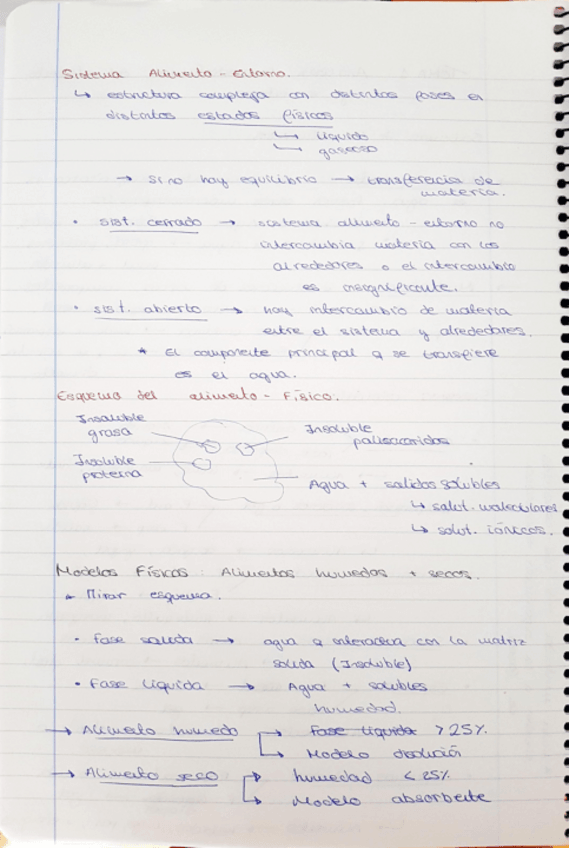 Sistema Alimento - Entorno.
↳ estructura compleja con distintas fases en
distintos estados físicos
↳ líquido
↳ gaseoso
→ si no hay equilibrio → transferencia de
materia.
• sist. cerrado → sistema alimento - entorno no
intercambia materia con los
alrededores o el intercambio
es insignificante.
• sist. abierto → hay intercambio de materia
entre el sistema y alrededores.
* El componente principal q se transfiere
es el agua.
Esquema del alimento - Físico.
Insoluble
grasa
Insoluble
polisacaridos
Insoluble
proteina
Agua + solidos solubles
↳ solut. moleculares
↳ solut. iónicos.
Modelos Físicos: Alimentos humedos + secos.
* Mirar esquema.
• Fase solida → agua q interacciona con la matriz
solida (Insoluble)
• Fase Líquida → Agua + solubles
humedad.
→ Alimento humedo → Fase líquida > 25%.
↳ Modelo disolución
→ Alimento seco → humedad < 25%
↳ Modelo absorbente